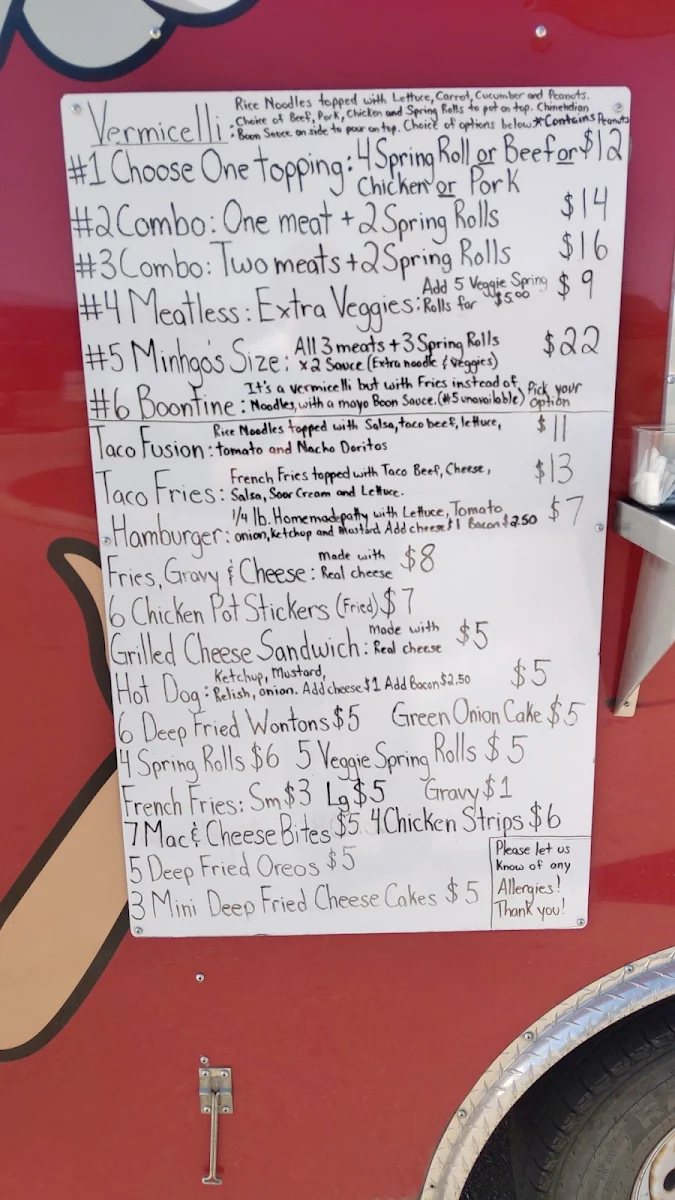 Vermicelli: Rice Noodles topped with Lettuce, Carrot, Cucumber and Peanuts.
Choice of Beef, Pork, Chicken and Spring Rolls to put on top. Chinehdian
Boon Sauce on side to pour on top. Choice of options below *Contains Peanuts
#1 Choose One topping: 4 Spring Roll or Beef or $12
Chicken or Pork
#2 Combo: One meat + 2 Spring Rolls $14
#3 Combo: Two meats + 2 Spring Rolls $16
#4 Meatless: Extra Veggies: Add 5 Veggie Spring $9
Rolls for $5.00
#5 Minhgo's Size: All 3 meats + 3 Spring Rolls $22
x2 Sauce (Extra noodle & veggies)
#6 Boontine: It's a vermicelli but with Fries instead of Pick your
Noodles, with a mayo Boon Sauce. (#5 unavailable) Option
Taco Fusion: Rice Noodles topped with Salsa, taco beef, lettuce, $11
tomato and Nacho Doritos
Taco Fries: French Fries topped with Taco Beef, Cheese, $13
Salsa, Sour Cream and Lettuce.
Hamburger: 1/4 lb. Homemad patty with Lettuce, Tomato $7
onion, Ketchup and Mustard Add cheese $1 Bacon $2.50
Fries, Gravy & Cheese: made with $8
Real cheese
6 Chicken Pot Stickers (Fried) $7
Grilled Cheese Sandwich: made with $5
Real cheese
Hot Dog: Ketchup, Mustard, $5
Relish, onion. Add cheese $1 Add Bacon $2.50
6 Deep Fried Wontons $5 Green Onion Cake $5
4 Spring Rolls $6 5 Veggie Spring Rolls $5
French Fries: Sm $3 Lg $5 Gravy $1
7 Mac & Cheese Bites $5 4 Chicken Strips $6
5 Deep Fried Oreos $5
3 Mini Deep Fried Cheese Cakes $5
Please let us
Know of any
Allergies!
Thank you!